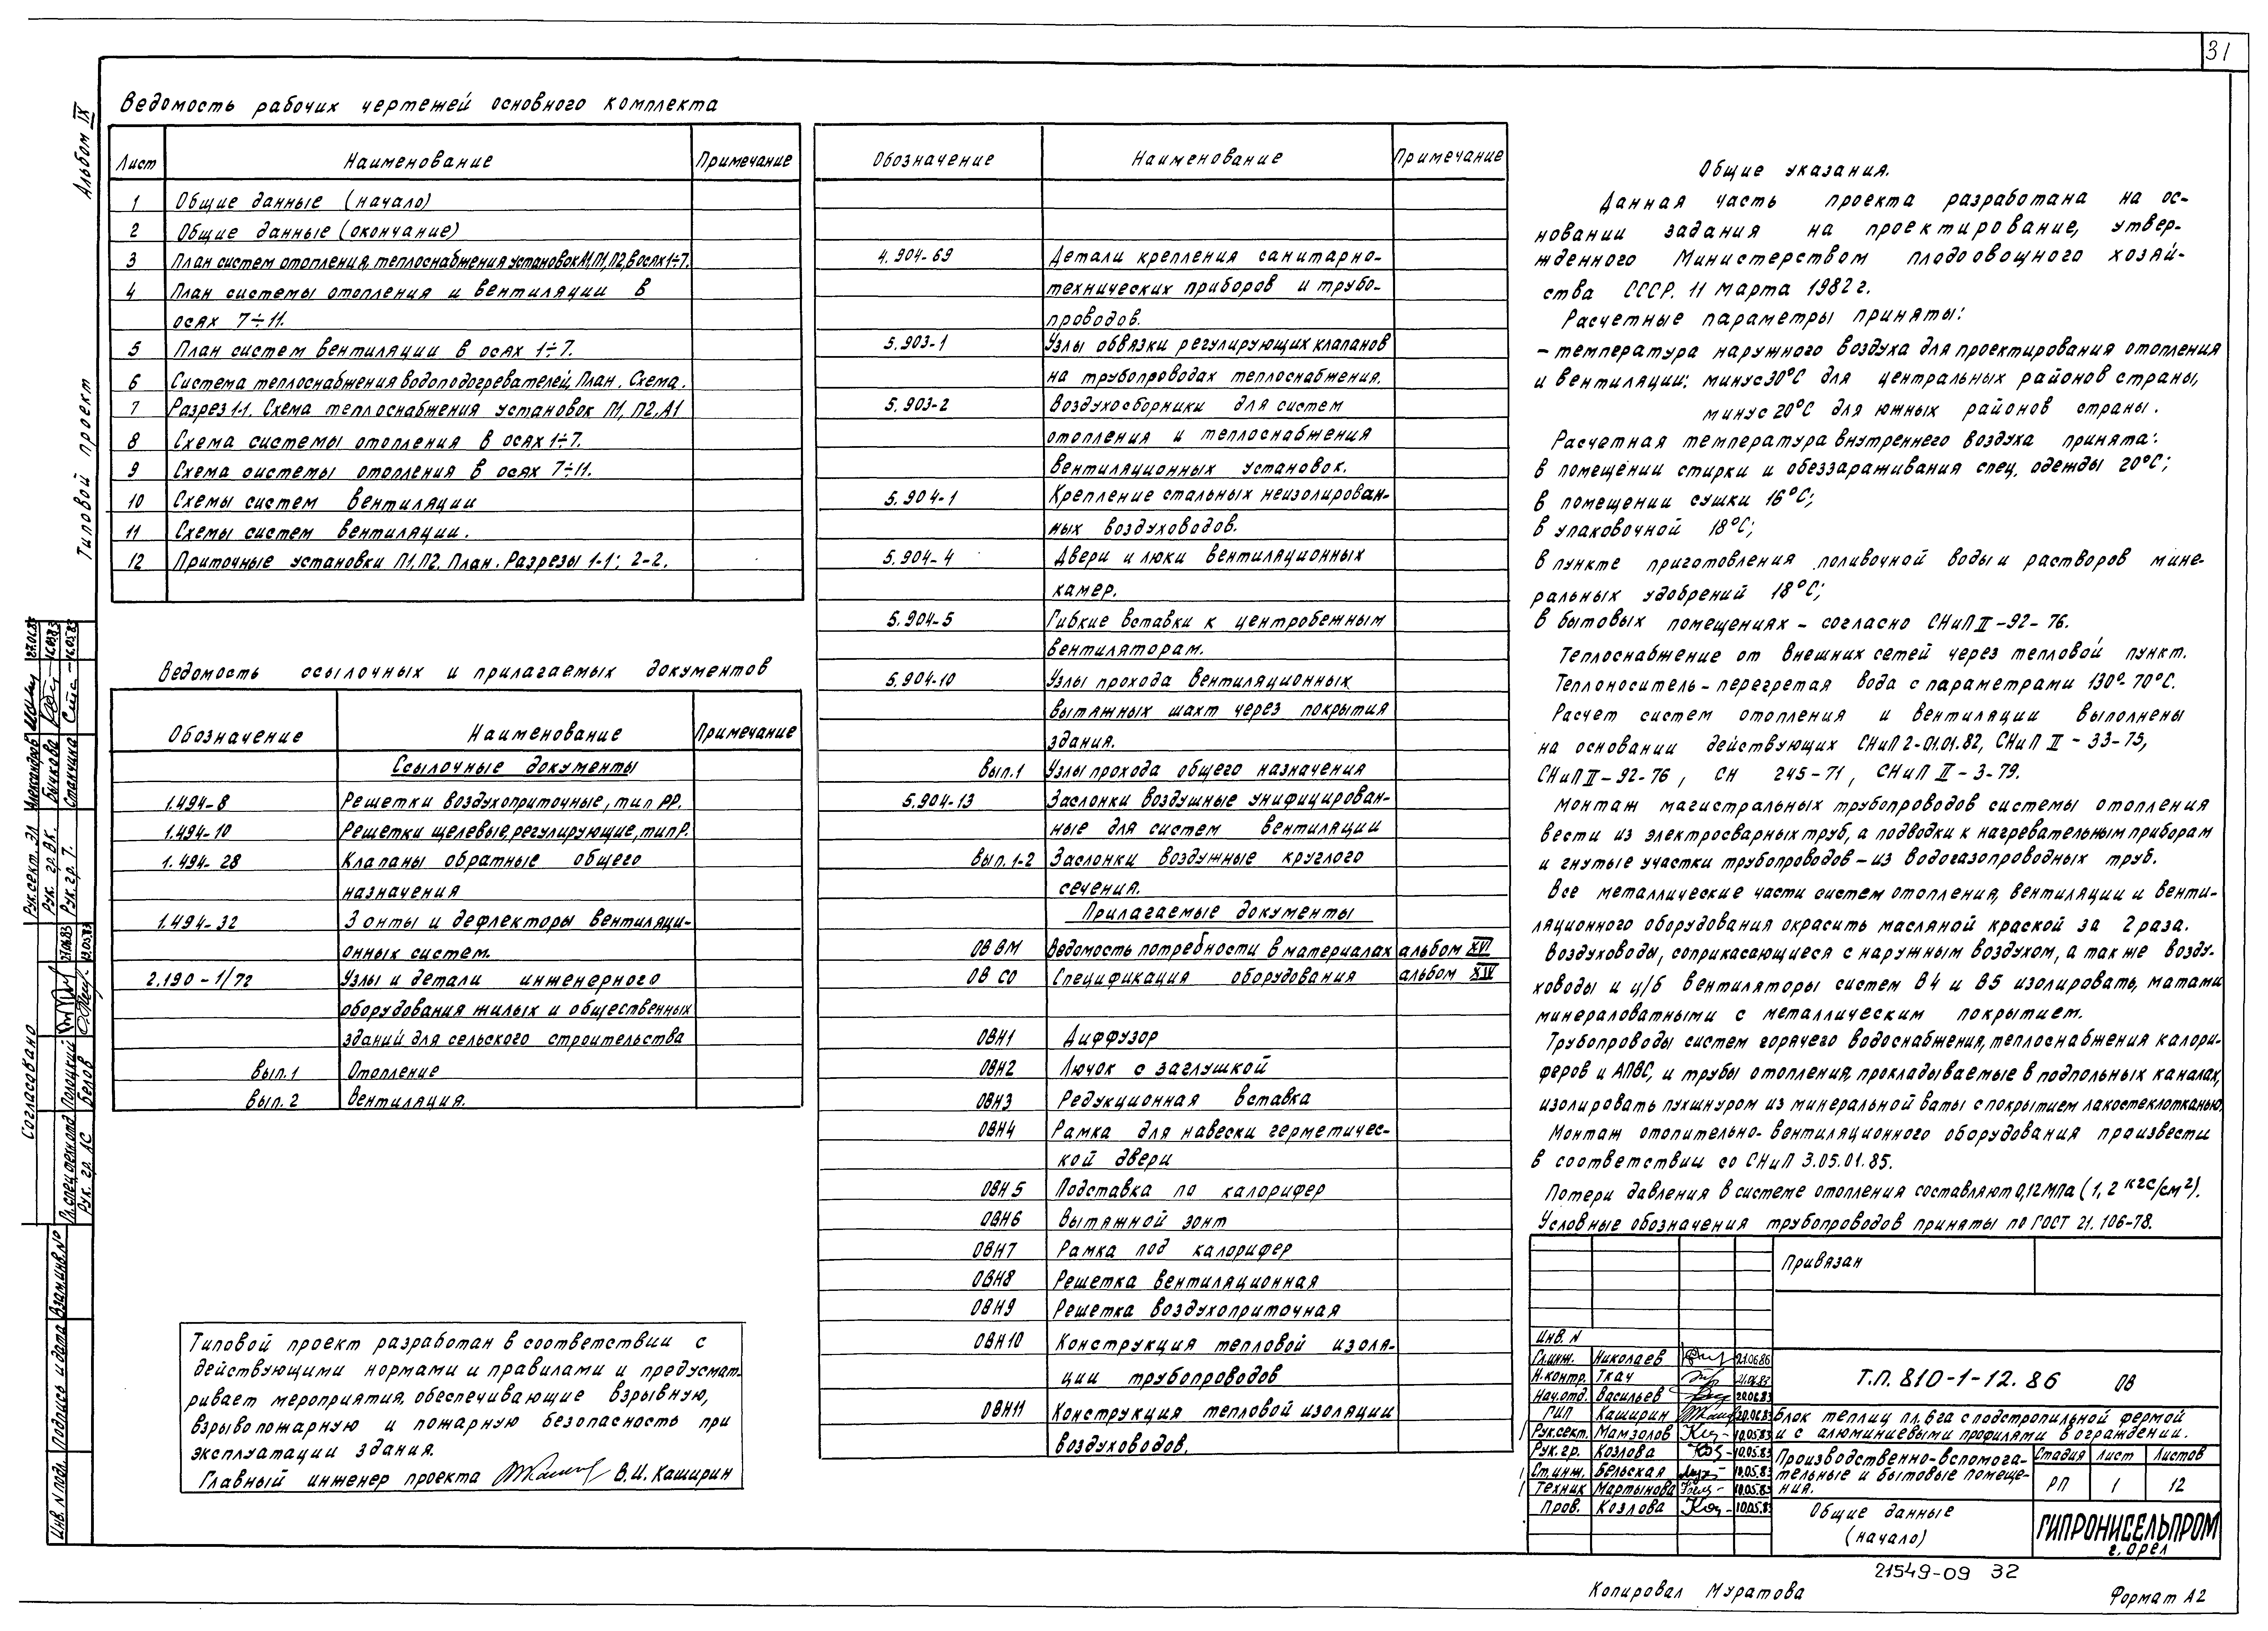 31
Альбом IX
Типовой проект
Ведомость рабочих чертежей основного комплекта
Лист Наименование Примечание
1 Общие данные (начало)
2 Общие данные (окончание)
3 План систем отопления, теплоснабжения установок А1, П1, П2, в осях 1÷7.
4 План системы отопления и вентиляции в
осях 7÷11.
5 План систем вентиляции в осях 1÷7.
6 Система теплоснабжения водоподогревателей. План. Схема.
7 Разрез 1-1. Схема теплоснабжения установок П1, П2, А1
8 Схема системы отопления в осях 1÷7.
9 Схема системы отопления в осях 7÷11.
10 Схемы систем вентиляции
11 Схемы систем вентиляции.
12 Приточные установки П1, П2. План. Разрезы 1-1; 2-2.
Ведомость ссылочных и прилагаемых документов
Обозначение Наименование Примечание
Ссылочные документы
1.494-8 Решетки воздухоприточные, тип РР.
1.494-10 Решетки щелевые, регулирующие, тип Р.
1.494-28 Клапаны обратные общего
назначения
1.494-32 Зонты и дефлекторы вентиляци-
онных систем.
2.190-1/72 Узлы и детали инженерного
оборудования жилых и общественных
зданий для сельского строительства
Вып.1 Отопление
Вып. 2 Вентиляция.
Типовой проект разработан в соответствии с
действующими нормами и правилами и предусмат-
ривает мероприятия, обеспечивающие взрывную,
взрывопожарную и пожарную безопасность при
эксплуатации здания.
Главный инженер проекта В.И. Каширин
Обозначение Наименование Примечание
4.904-69 Детали крепления санитарно-
технических приборов и трубо-
проводов.
5.903-1 Узлы обвязки регулирующих клапанов
на трубопроводах теплоснабжения.
5.903-2 Воздухосборники для систем
отопления и теплоснабжения
вентиляционных установок.
5.904-1 Крепление стальных неизолирован-
ных воздуховодов.
5.904-4 Двери и люки вентиляционных
камер.
5.904-5 Гибкие вставки к центробежным
вентиляторам.
5.904-10 Узлы прохода вентиляционных
вытяжных шахт через покрытия
здания.
Вып.1 Узлы прохода общего назначения
5.904-13 Заслонки воздушные унифицирован-
ные для систем вентиляции
Вып. 1-2 Заслонки воздужные круглого
сечения.
Прилагаемые документы
ОВ ВМ Ведомость потребности в материалах альбом XVI
ОВ СО Спецификация оборудования альбом XIV
ОВН1 Диффузор
ОВН2 Лючок с заглушкой
ОВН3 Редукционная вставка
ОВН4 Рамка для навески герметичес-
кой двери
ОВН5 Подставка по калорифер
ОВН6 Вытяжной зонт
ОВН7 Рамка под калорифер
ОВН8 Решетка вентиляционная
ОВН9 Решетка воздухоприточная
ОВН10 Конструкция тепловой изоля-
ции трубопроводов
ОВН11 Конструкция тепловой изоляции
воздуховодов.
Общие указания.
Данная часть проекта разработана на ос-
новании задания на проектирование, утвер-
жденного Министерством плодоовощного хозяй-
ства СССР. 11 марта 1982 г.
Расчетные параметры приняты:
- температура наружного воздуха для проектирования отопления
и вентиляции: минус 30°С для центральных районов страны,
минус 20°С для южных районов страны.
Расчетная температура внутреннего воздуха принята:
в помещении стирки и обеззараживания спец. одежды 20°С;
в помещении сушки 16°С;
в упаковочной 18°С;
в пункте приготовления поливочной воды и растворов мине-
ральных удобрений 18°С;
в бытовых помещениях - согласно СНиП II-92-76.
Теплоснабжение от внешних сетей через тепловой пункт.
Теплоноситель - перегретая вода с параметрами 130°-70°С.
Расчет систем отопления и вентиляции выполнены
на основании действующих СНиП 2-01.01.82, СНиП II-33-75,
СНиП II-92-76, СН 245-71, СНиП II-3-79.
Монтаж магистральных трубопроводов системы отопления
вести из электросварных труб, а подводки к нагревательным приборам
и гнутые участки трубопроводов - из водогазопроводных труб.
Все металлические части систем отопления, вентиляции и венти-
ляционного оборудования окрасить масляной краской за 2 раза.
Воздуховоды, соприкасающиеся с наружным воздухом, а так же возду-
ховоды и ц/б вентиляторы систем В4 и В5 изолировать матами
минераловатными с металлическим покрытием.
Трубопроводы систем горячего водоснабжения, теплоснабжения калори-
феров и АПВС, и трубы отопления, прокладываемые в подпольных каналах,
изолировать пухшнуром из минеральной ваты с покрытием лакостеклотканью.
Монтаж отопительно-вентиляционного оборудования произвести
в соответствии со СНиП 3.05.01.85.
Потери давления в системе отопления составляют 0,12 МПа (1,2 кгс/см²).
Условные обозначения трубопроводов приняты по ГОСТ 21.106-78.
Привязан
Инв. N
Гл.инж. Николаев 21.06.86
Н.контр. Ткач 21.06.83
Нач.отд. Васильев 20.06.83
ГИП Каширин 20.06.83
Рук.сект. Мамзолов 10.05.83
Рук.гр. Козлова 10.05.83
Ст.инж. Бельская 10.05.83
Техник Мартынова 10.05.83
Пров. Козлова 10.05.83
Т.П. 810-1-12.86 ОВ
Блок теплиц пл. 6га с подстропильной фермой
и с алюминиевыми профилями в ограждении.
Производственно-вспомога-
тельные и бытовые помеще-
ния.
Стадия Лист Листов
РП 1 12
Общие данные
(начало)
ГИПРОНИСЕЛЬПРОМ
г. Орел
21549-09 32
Копировал Муратова
Формат А2
Согласовано
Рук.сект. ЭЛ Александров
Рук. гр. В.К. Бычкова 16.05.83
Рук. гр. Т. Станчика 16.05.83
Гл. спец. Полоцкий 21.06.83
Рук. гр. АС Белов 13.05.83
Инв. N подл. Подпись и дата Взам.инв.№